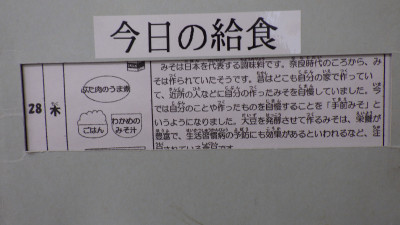 今日の給食
28
木
ぶた肉のうま煮
ごはん
わかめの
みそ汁
みそは日本を代表する調味料です。奈良時代のころから、み
そは作られていたそうです。昔はどこも自分の家で作ってい
て、近所の人などに自分の作ったみそを自慢していました。今
では自分のことや作ったものを自慢することを「手前みそ」と
いうようになりました。大豆を発酵させて作るみそは、栄養が
豊富で、生活習慣病の予防にも効果があるといわれるなど、注
されている
です。